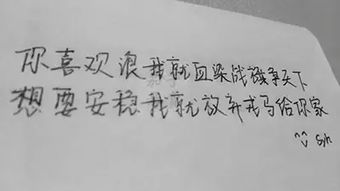 你喜欢浪我就血染战旗争天下
想要安稳我就放弃戎马给你家
syh